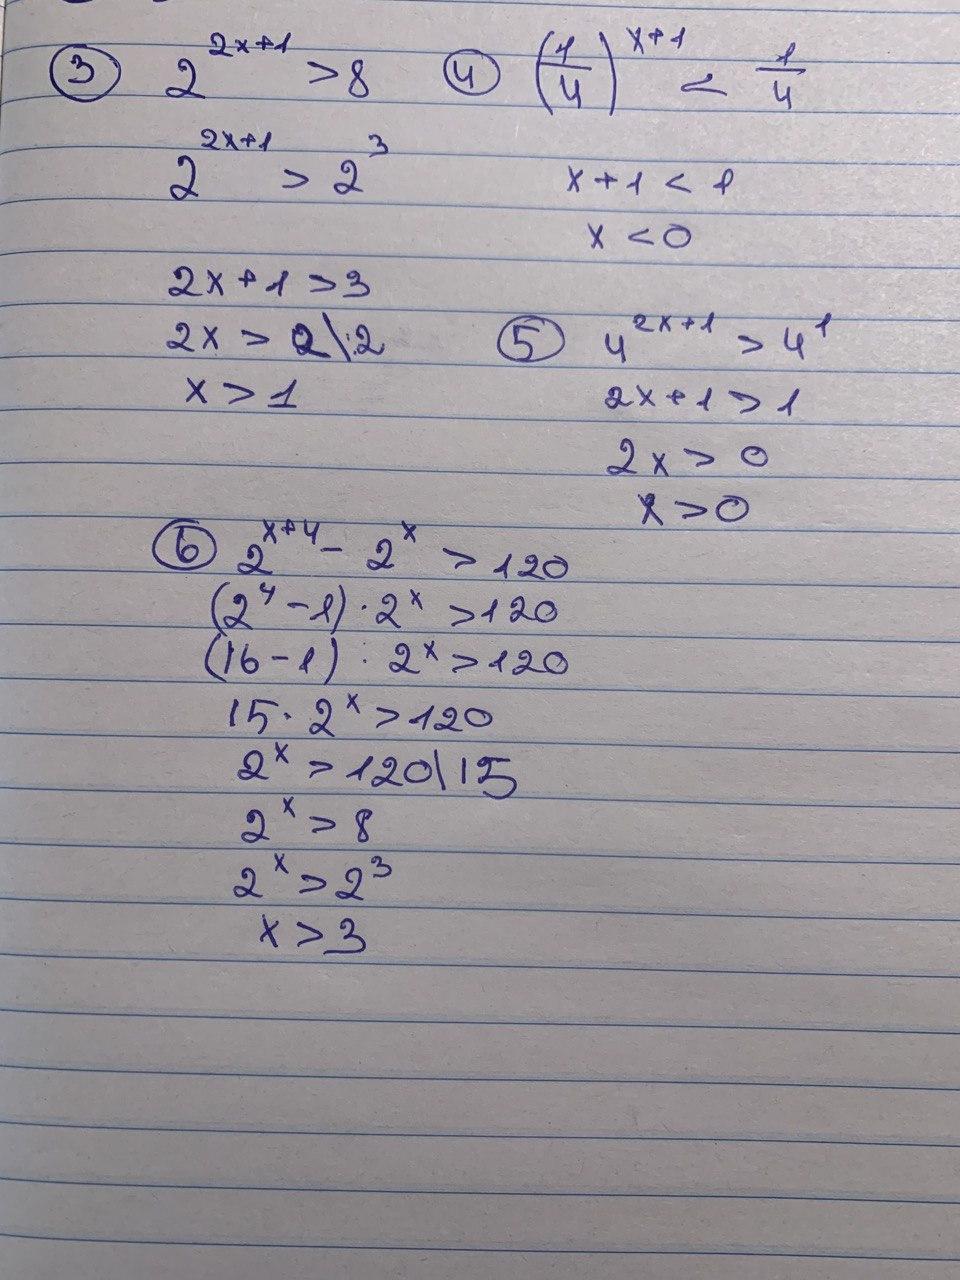 ③ 2^{2x+1} > 8
2^{2x+1} > 2^3
2x + 1 > 3
2x > 2 \:2
x > 1
④ (1/4)^{x+1} < 1/4
x + 1 < 1
x < 0
⑤ 4^{2x+1} > 4^1
2x + 1 > 1
2x > 0
x > 0
⑥ 2^{x+4} - 2^x > 120
(2^4 - 1) · 2^x > 120
(16 - 1) · 2^x > 120
15 · 2^x > 120
2^x > 120 \ 15
2^x > 8
2^x > 2^3
x > 3